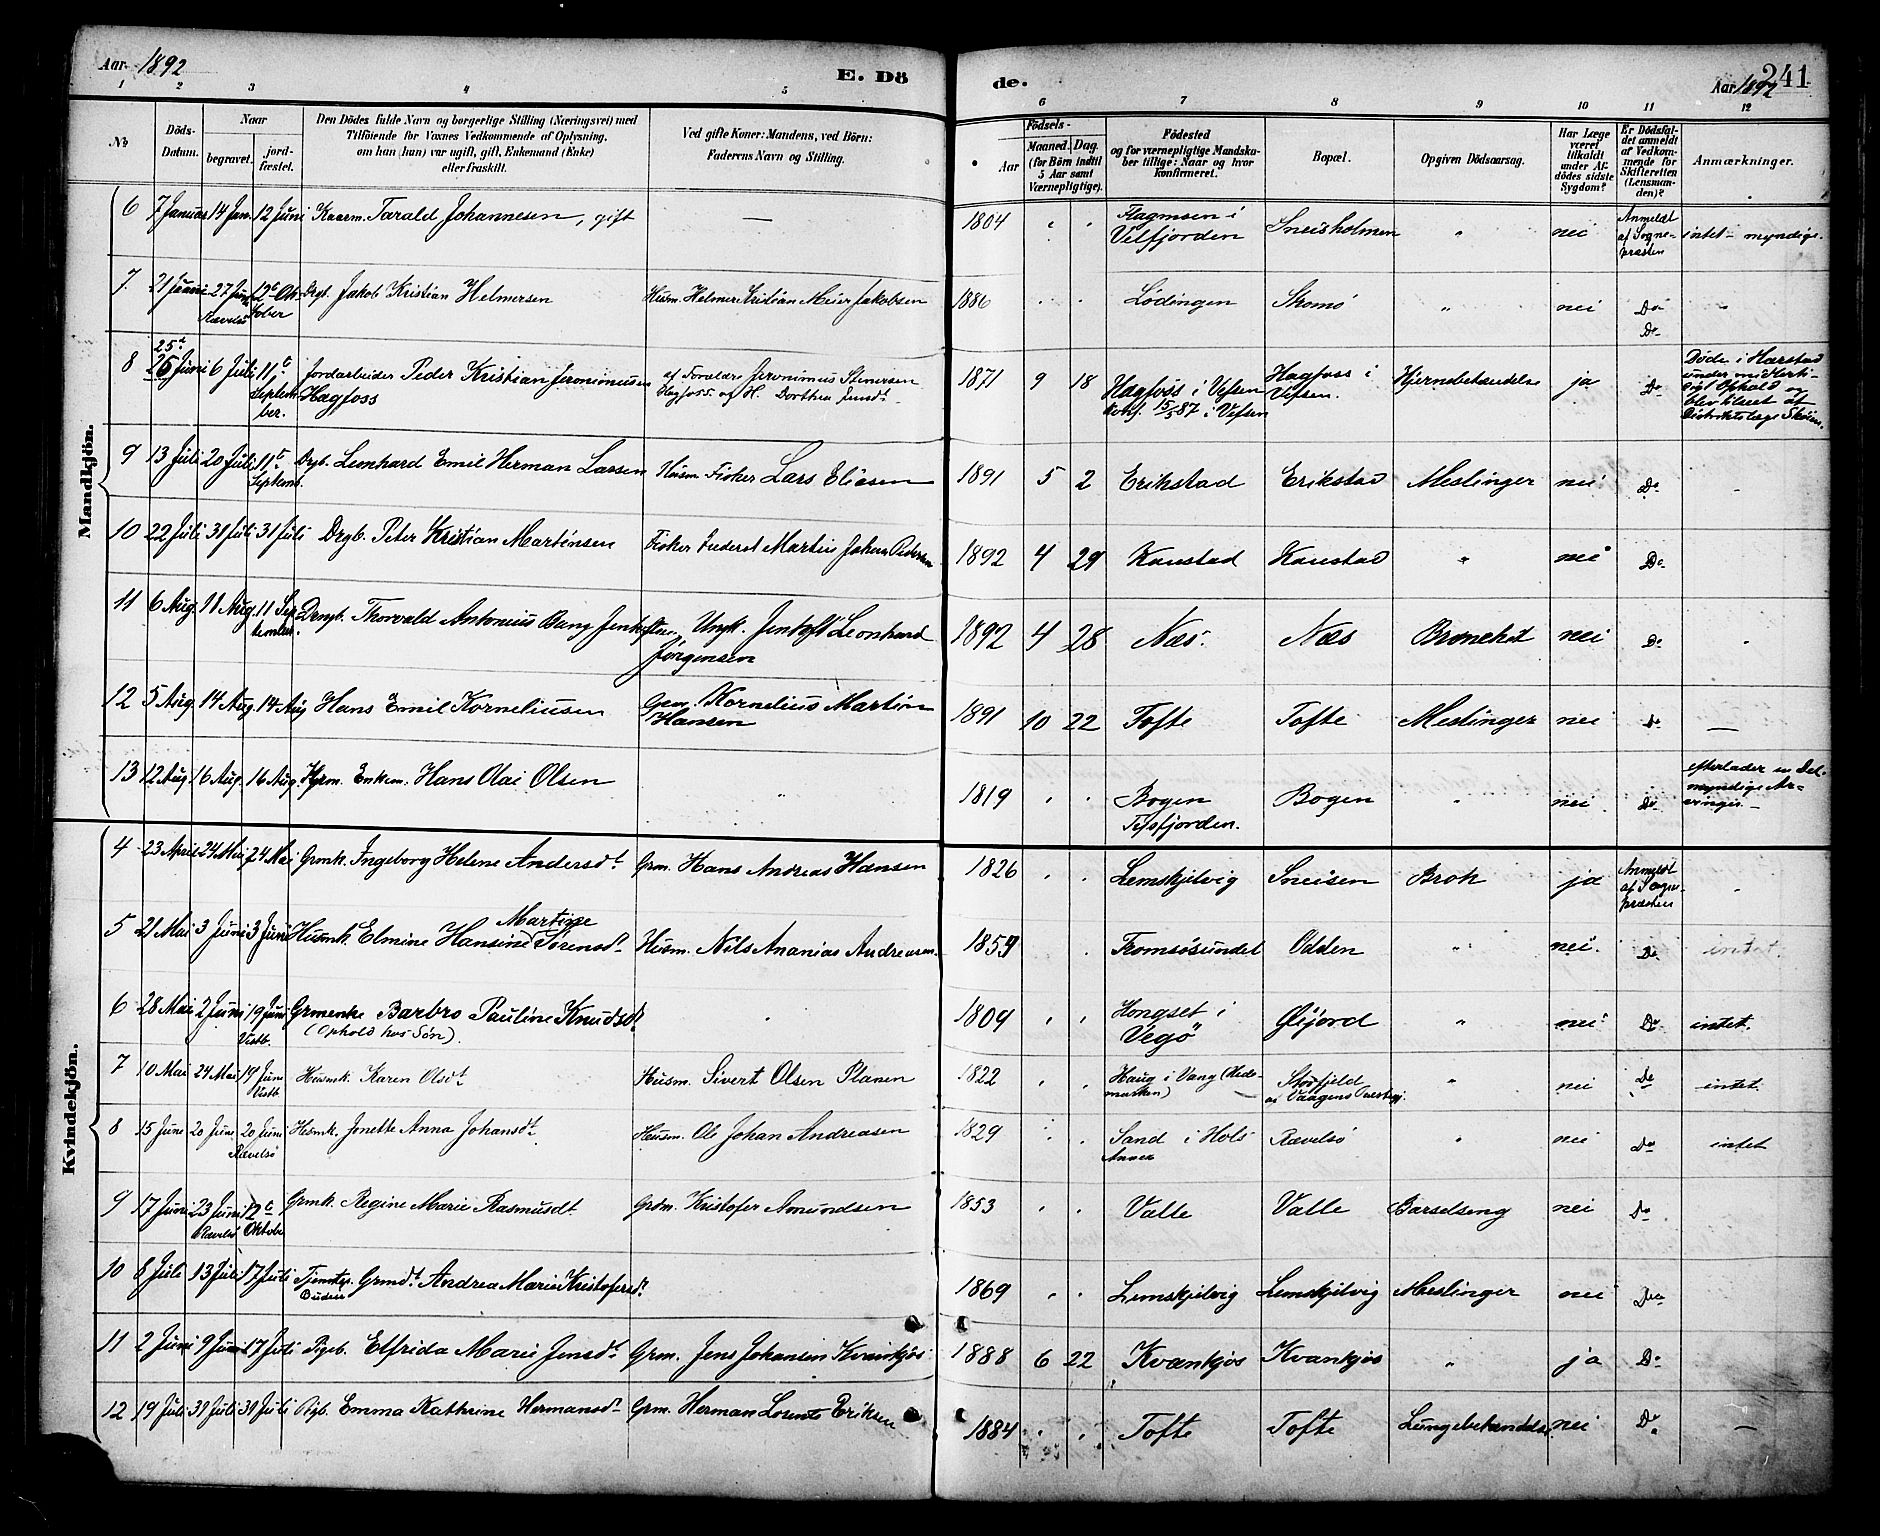 Aar 1892
E. Dö
de.
Aar 1892
241
1 2 3 4 5 6 7 8 9 10 11 12
No
Döds-
Datum.
Naar
begravet.
jord-
fæstet.
Den Dödes fulde Navn og borgerlige Stilling (Næringsvei) med
Tilföiende for Voxnes Vedkommende af Oplysning,
om han (hun) var ugift, gift, Enkemand (Enke)
eller fraskilt.
Ved gifte Koner: Mandens, ved Börn:
Faderens Navn og Stilling.
Födsels-
Aar
Maaned. Dag.
(for Börn indtil
5 Aar samt
Værnepligtige).
Födested
og for værnepligtige Mandska-
ber tillige: Naar og hvor
konfirmeret.
Bopæl.
Opgiven Dödsaarsag.
Har Læge
været
tilkaldt
under Af-
dödes sidste
Sygdom?
Er Dödsfal-
det anmeldt
af Vedkom-
mende for
Skifteretten
(Lensman-
den)?
Anmærkninger.
Mandkjön.
6 7 Januar 14 Jan. 12 Juni Kaarm. Tarald Johannesen, gift — 1804 " " Flagmsen i Velfjorden Sneisholmen " nei Anmeldt af Sogne-præsten intet myndige.
7 21 Juni 27 Juni Rævelsö 12te Oktober Drgb. Jakob Kristian Helmersen Husm. Helmer Kristian Meier Jakobsen 1886 " " Lödingen Skomö " nei Do "
8 25t 26 Juni 6 Juli 11te September. Jordarbeider Peder Kristian Jeronimusen Hagfoss af Forældre Jeronimus Stenersen Hagfoss og H. Dorthea 1871 9 18 Hagfoss i Vefsen Konf. 15/5 87 i Vefsen Hagfoss i Vefsen. Hjernebetændelse ja Do Döde i Harstad under midlerti-digt Ophold og blev tilseet af Distriktslæge
9 13 Juli 20 Juli 11te Septemb. Drgb. Leonhard Emil Herman Larsen Husm Fisker Lars Eliesen 1891 5 2 Erikstad Erikstad Meslinger nei Do "
10 22 Juli 31 Juli 31 Juli Drgb. Peter Kristian Martinsen Fisker Inderst Martin Johan Pedersen 1892 4 29 Kanstad Kanstad " nei Do
11 6 Aug. 11 Aug. 11 September. Drengb. Thorvald Antonius Bang Jentoftsen Ungk. Jentoft Leonhard Jörgensen 1892 4 28 Næs. Næs Bronchit nei Do "
12 5 Aug. 14 Aug. 14 Aug Hans Emil Korneliusen Grm. Kornelius Martin Hansen 1891 10 22 Tofte Tofte Meslinger nei Do —
13 12 Aug. 16 Aug. 16 Aug. Enkem. Hans Olai Olsen " 1819 " " Bogen Tysfjorden. Bogen " nei Do efterlader en Del myndige Ar-vinger. —
Kvindekjön.
4 23 April 24 Mai 24 Mai Grmk. Ingeborg Helene Andersdt Grm. Hans Andreas Hansen 1826 " " Lemskjelvig Sneisen Brok ja Anmeldt af Sogne-præsten "
5 21 Mai 3 Juni 3 Juni Husmk. Elmine Hansine Martine Sörensdt Husm. Nils Ananias Andreasen. 1859 " Tromsösundet Odden " nei. Do intet.
6 28 Mai 2 Juni 19 Juni Vestb. Grmenke Barbro Pauline Knudsdt (Ophold hos Sön). " 1809 " " Hongset i Vegö Öijord " nei Do intet.
7 10 Mai 24 Mai 19 Juni Vestb. Husmk. Karen Olsdt Husm. Sivert Olsen Planen 1822 " " Haug i Vang (Hede-marken) Storfjeld " nei Do intet.
8 15 Juni 20 Juni 20 Juni Rævelsö Husmk. Jonette Anna Johansdt Husm. Ole Johan Andreasen 1829 " " Sand i Hols Annex Rævelsö " nei Do intet
9 17 Juni 23 Juni Rævelsö 12te Oktober Grmk. Regine Marie Rasmusdt. Grdm. Kristofer Amundsen 1853 " " Valle Valle Barselseng nei Do
10 8 Juli 13 Juli 17 Juli Tjenstep. Grmdt. Andrea Marie Kristofersdt. 1869 " " Lemskjelvig Lemskjelvig Meslinger nei Do
11 2 Juni 9 Juni 17 Juli Pigeb. Elfrida Marie Jensdt Grm. Jens Johansen Kvænkjös 1888 6 22 Kvænkjös Kvænkjös " ja Do
12 19 Juli 31 Juli 31 Juli Pgb. Emma Kathrine Hermansdt Grm. Herman Lorents Eriksen 1884 " " Tofte Tofte Lungebetændelse nei Do —